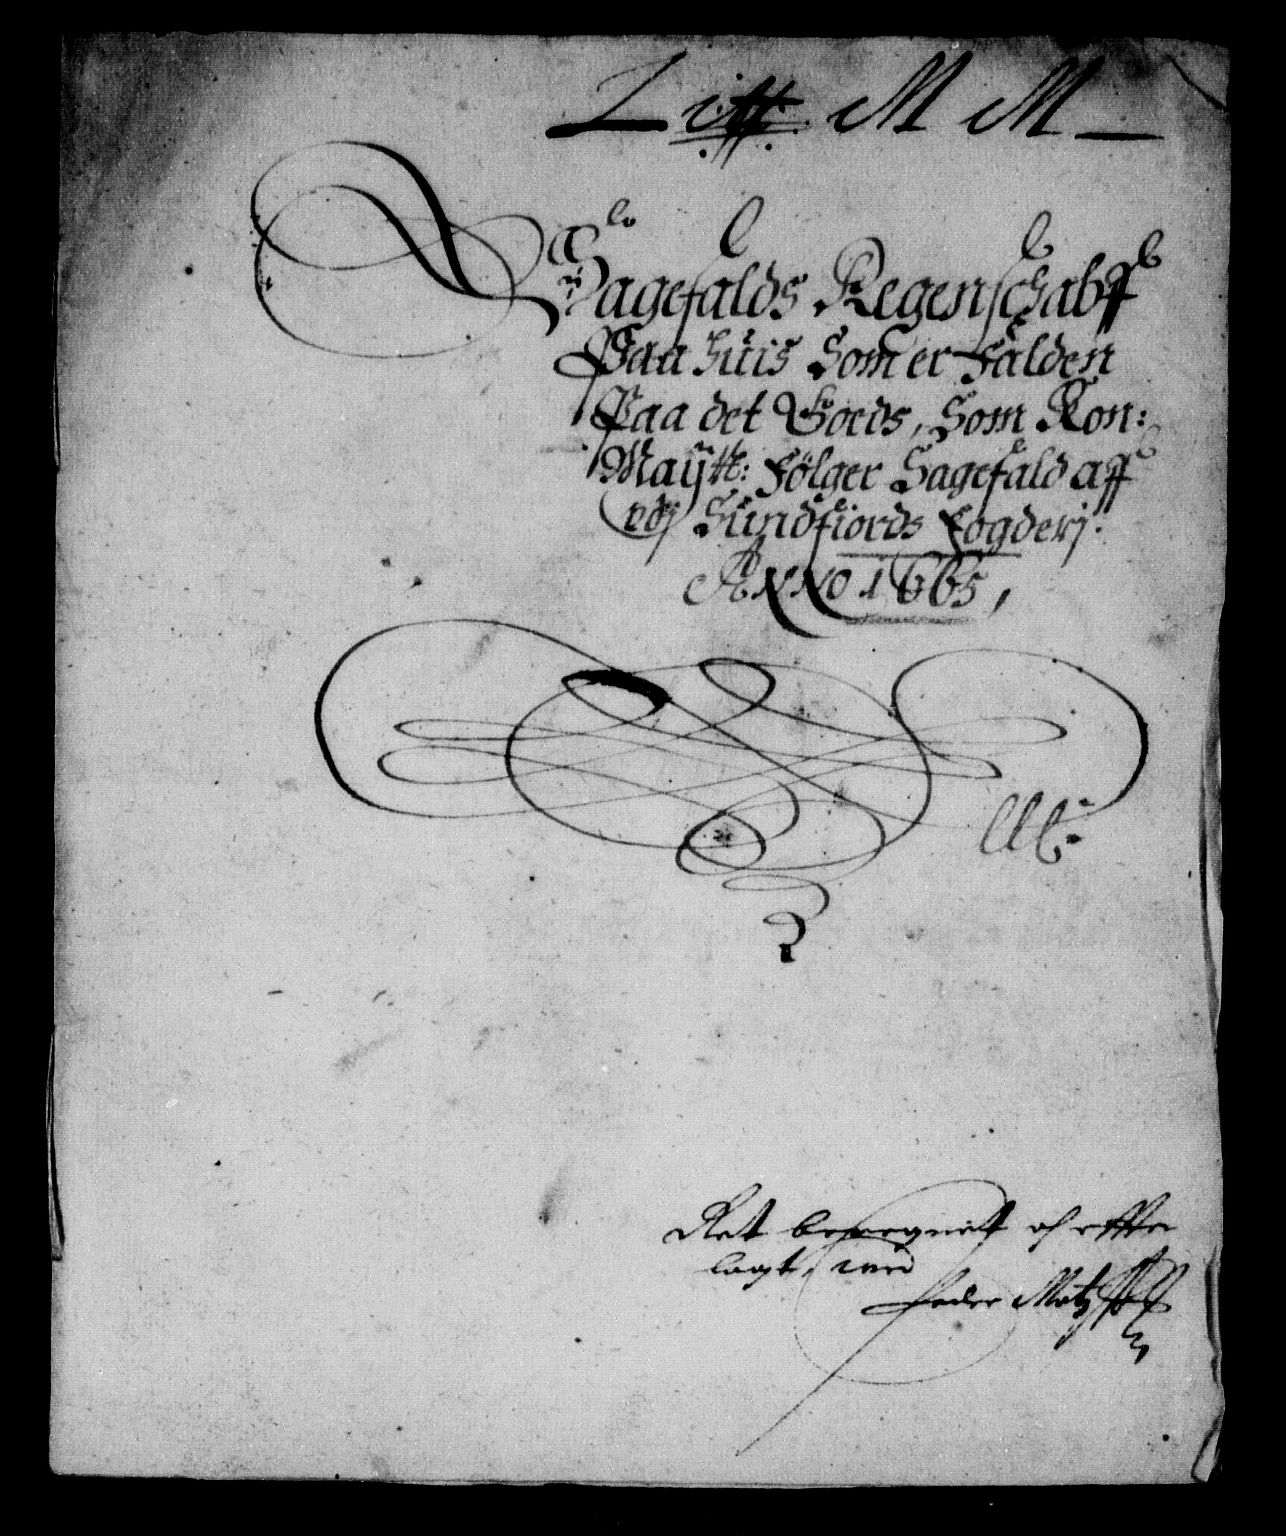 Litt. M M
Sagefalds Regenschab
Paa huis Som er Falden
Paa det Goeds, Som Kon:
Maÿtt: Fölger Sagefald aff
udj Sundfiords Fogderj.
Anno 1665,
Ret beregnet och effter
lagt,
Peder Matz